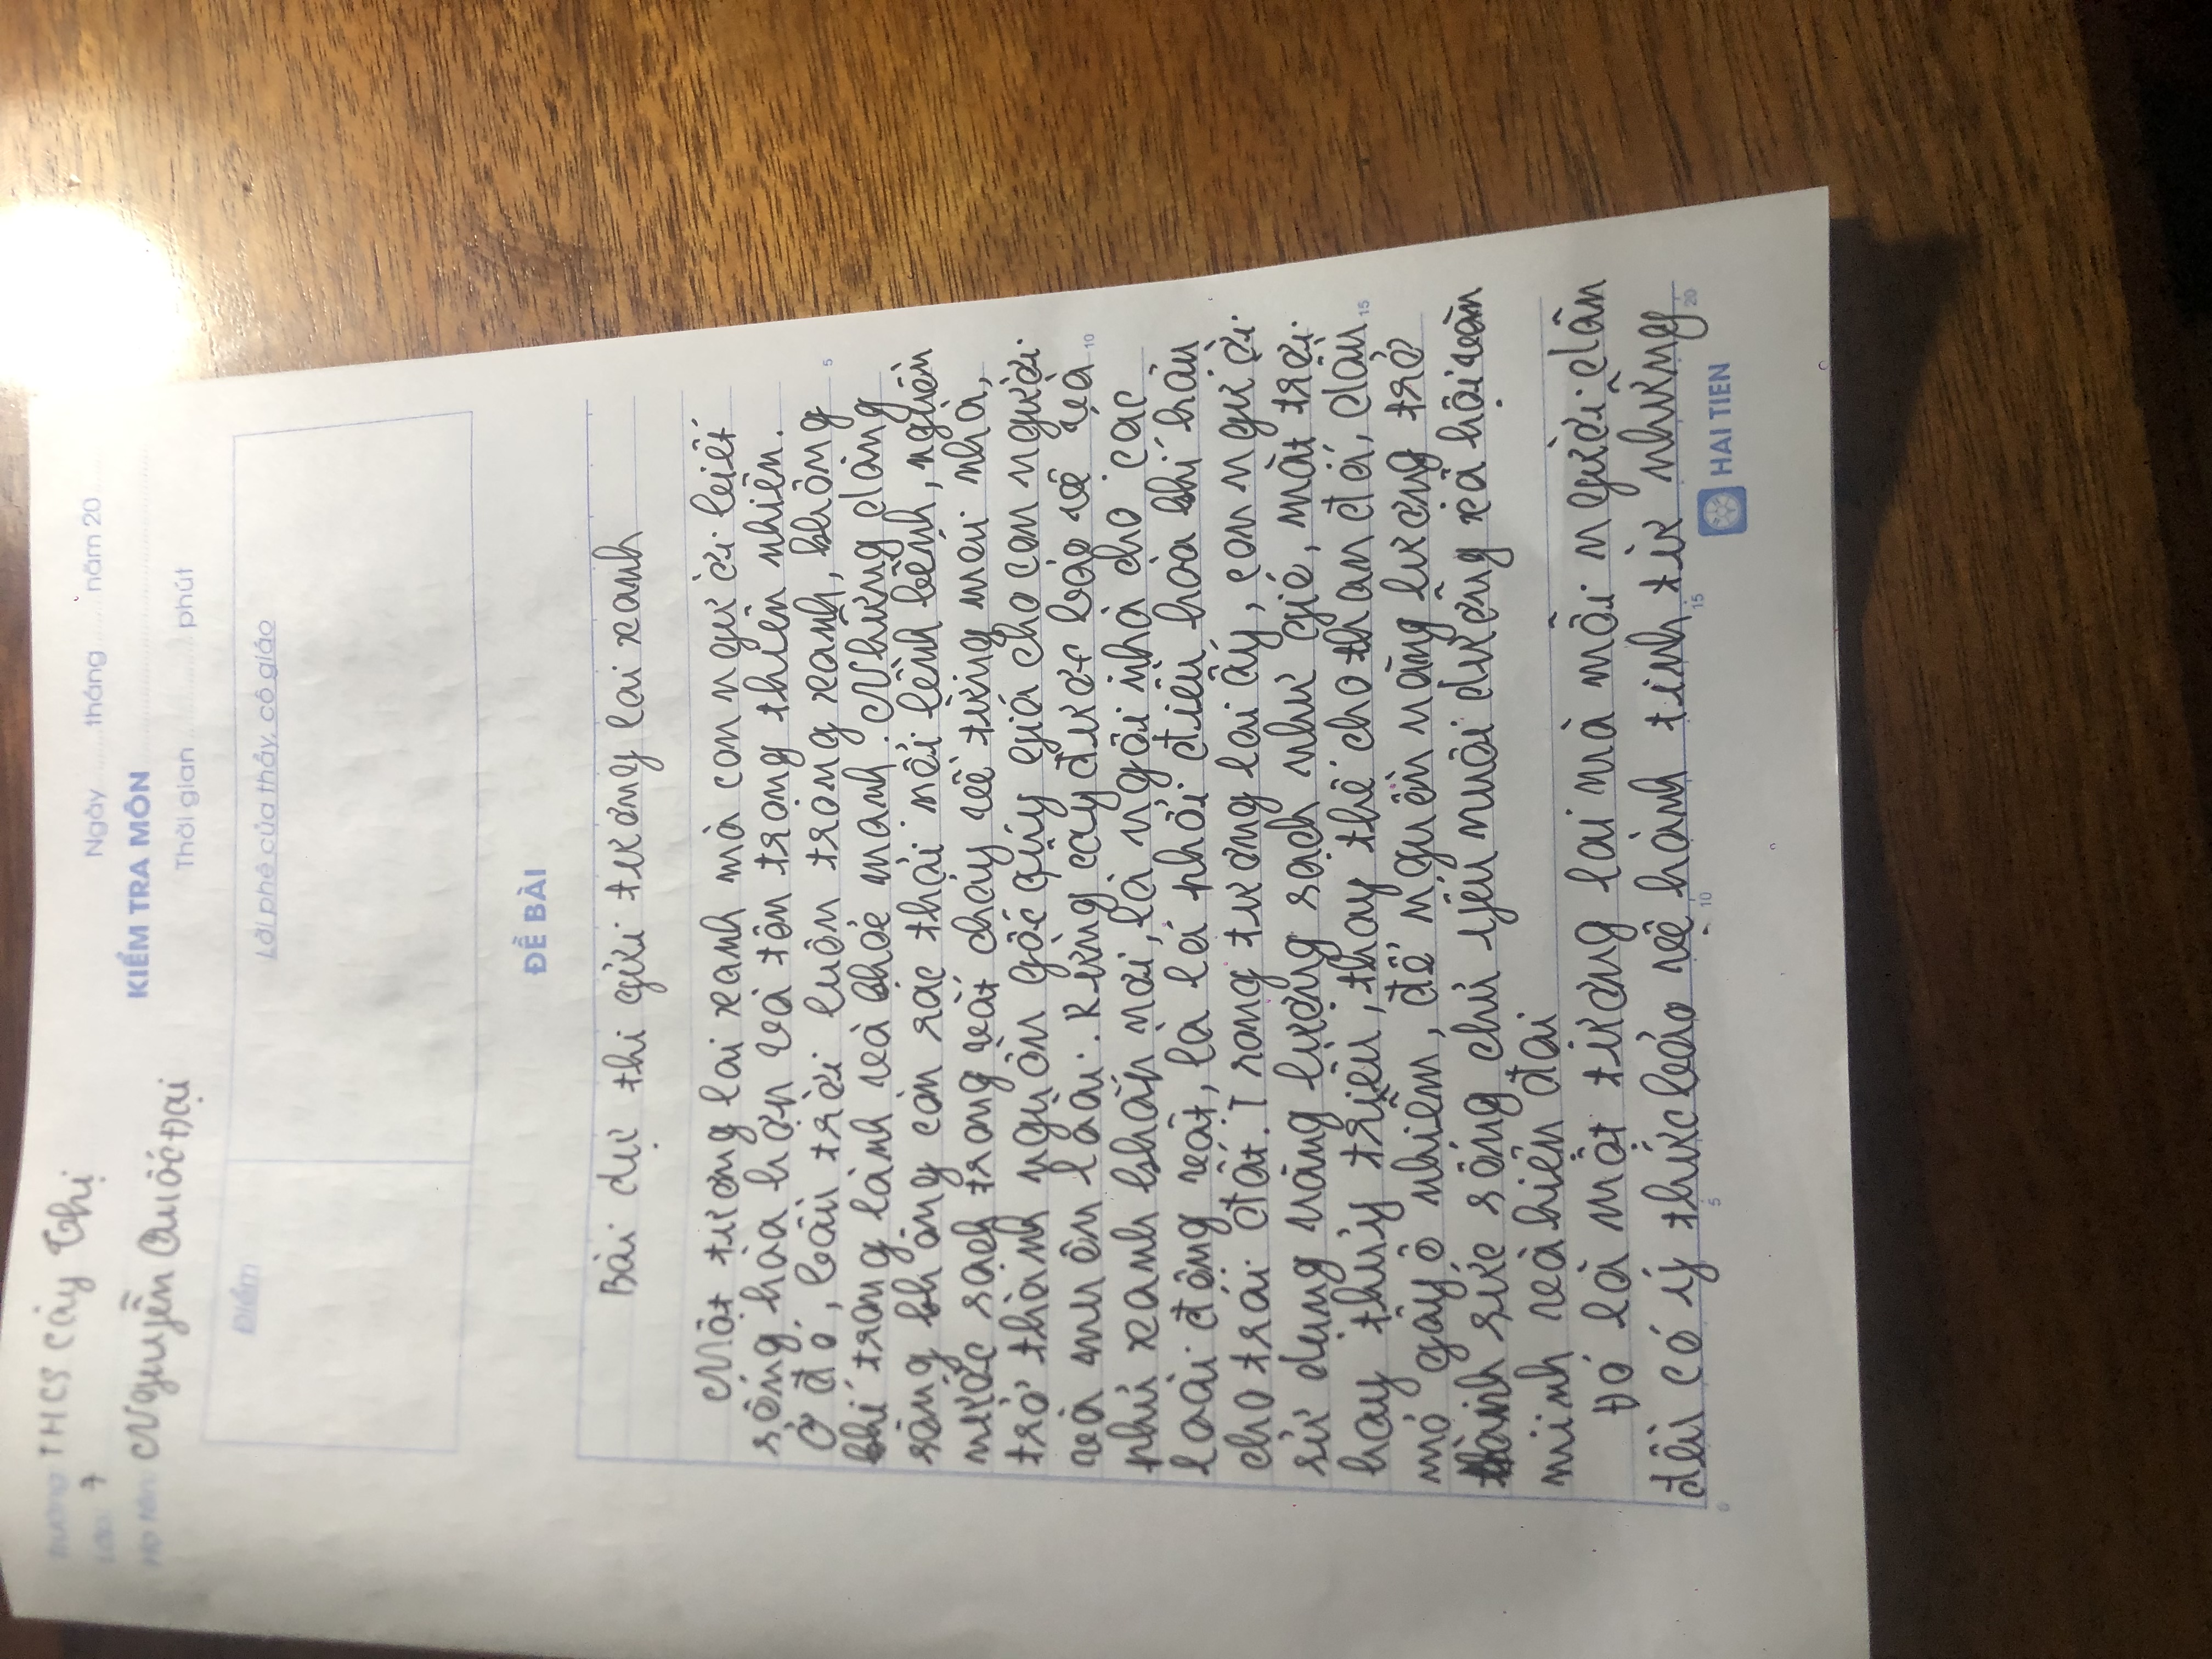 Trường THCS Cây Thị
Ngày.......tháng.......năm 20.......
Lớp: 7
KIỂM TRA MÔN
Họ tên: Nguyễn Quốc Đại
Thời gian............phút
Điểm
Lời phê của thầy, cô giáo
ĐỀ BÀI
Bài dự thi gửi tương lai xanh
Một tương lai xanh mà con người biết
sống hòa hợp và tôn trọng thiên nhiên.
Ở đó, bầu trời luôn trong xanh, không
khí trong lành và khỏe mạnh. Những dòng
sông không còn rác thải nổi lềnh bềnh, nguồn
nước sạch trong vắt chảy về từng mái nhà,
trở thành nguồn gốc quý giá cho con người
và muôn loài. Rừng cây được bảo vệ và
phủ xanh khắp nơi, là ngôi nhà cho các
loài động vật, là lá phổi điều hòa khí hậu
cho trái đất. Trong tương lai ấy, con người
sử dụng năng lượng sạch như gió, mặt trời
hay thủy triều, thay thế cho than đá, dầu
mỏ gây ô nhiễm, để nguồn năng lượng trở
thành sức sống chủ yếu nuôi dưỡng xã hội văn
minh và hiện đại
Đó là một tương lai mà mỗi người dân
đều có ý thức bảo vệ hành tinh từ những
0
5
10
15
20
5
10
15
HẢI TIẾN